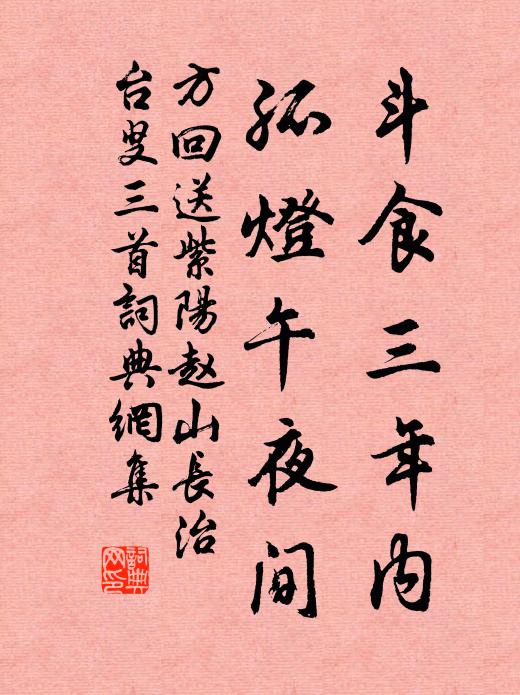 斗食三年内
孤燈午夜间
方回送紫陽赵山長治
台叟三首詞典網集
詞典網印